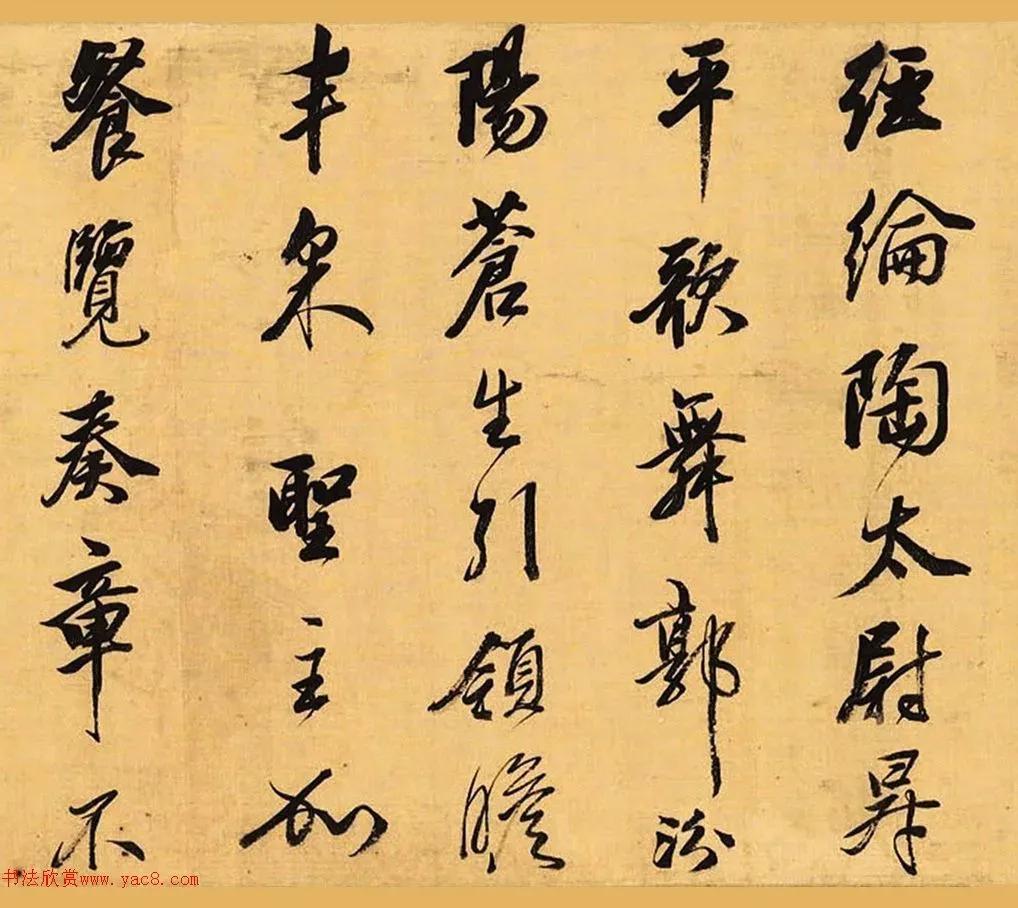 經綸陶太尉昇
平歌舞郭汾
陽蒼生引領瞻
丰采聖主加
餐覽奏章不
书法欣赏www.yac8.com